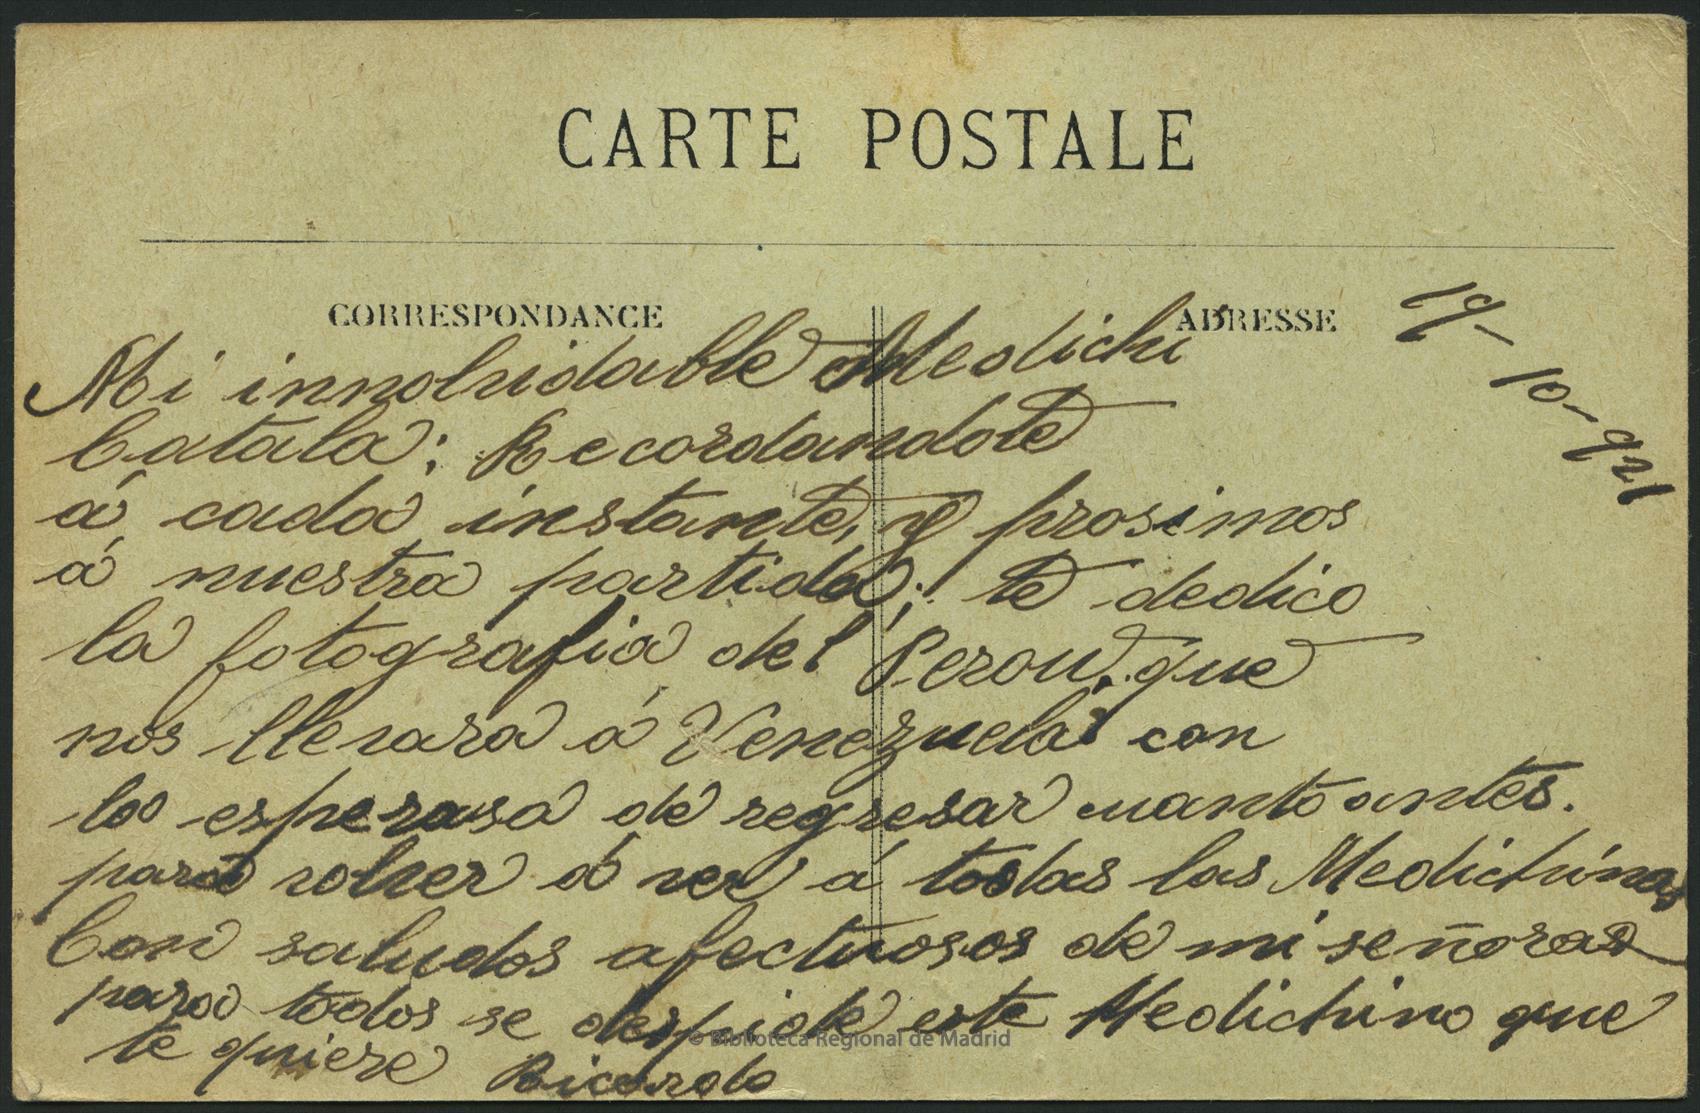 CARTE POSTALE
CORRESPONDANCE
ADRESSE
19-10-921
Mi innolvidable Medichi
Catala: Recordandote
á cada instante, y prosimos
á nuestra partida; te dedico
la fotografia del Perou, que
nos llevara á Venezuela; con
la esperansa de regresar cuanto antes.
para volver á ver á todas las Medichinas
Con saludos afectuosos de mi señora
para todos se despide este Medichino que
te quiere Ricardo
© Biblioteca Regional de Madrid